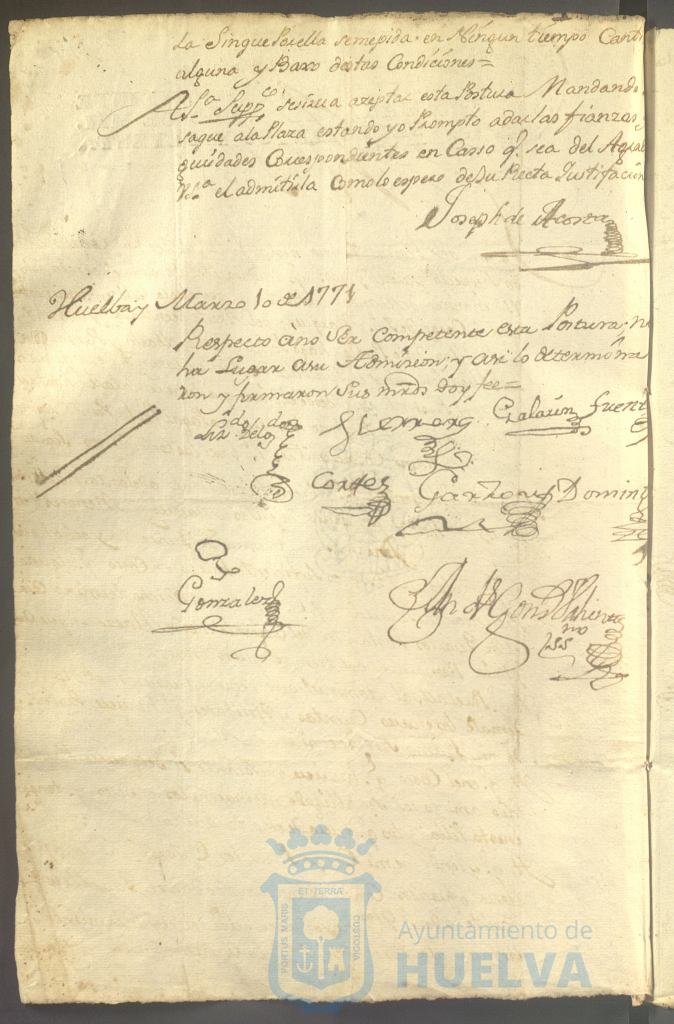 la Singue Porella semepida en Ningun tiempo Canti
alguna y Baxo destas Condiciones=
A V.ª Supp.co sesirva azeptar esta Postura Mandando
saque ala Plaza estando yo Prompto adar las fianzas
guidades Correspondientes en Casso q.e sea del Agra
V.ª el admitirla Como lo espero de su Recta Justifacion
Joseph de Acosta
Huelba y Marzo 10 de 1771
Respecto àno Ser Competente esta Postura; no
ha Lugar asu Admision; y asi lo determina
ron y firmaron Sus mrds doy fee=
Herrera Galavin fuent
Cortes Garzon Domin
Gonzalez
PORTUS MARIS
ET TERRA
CUSTODIA
Ayuntamiento de
HUELVA